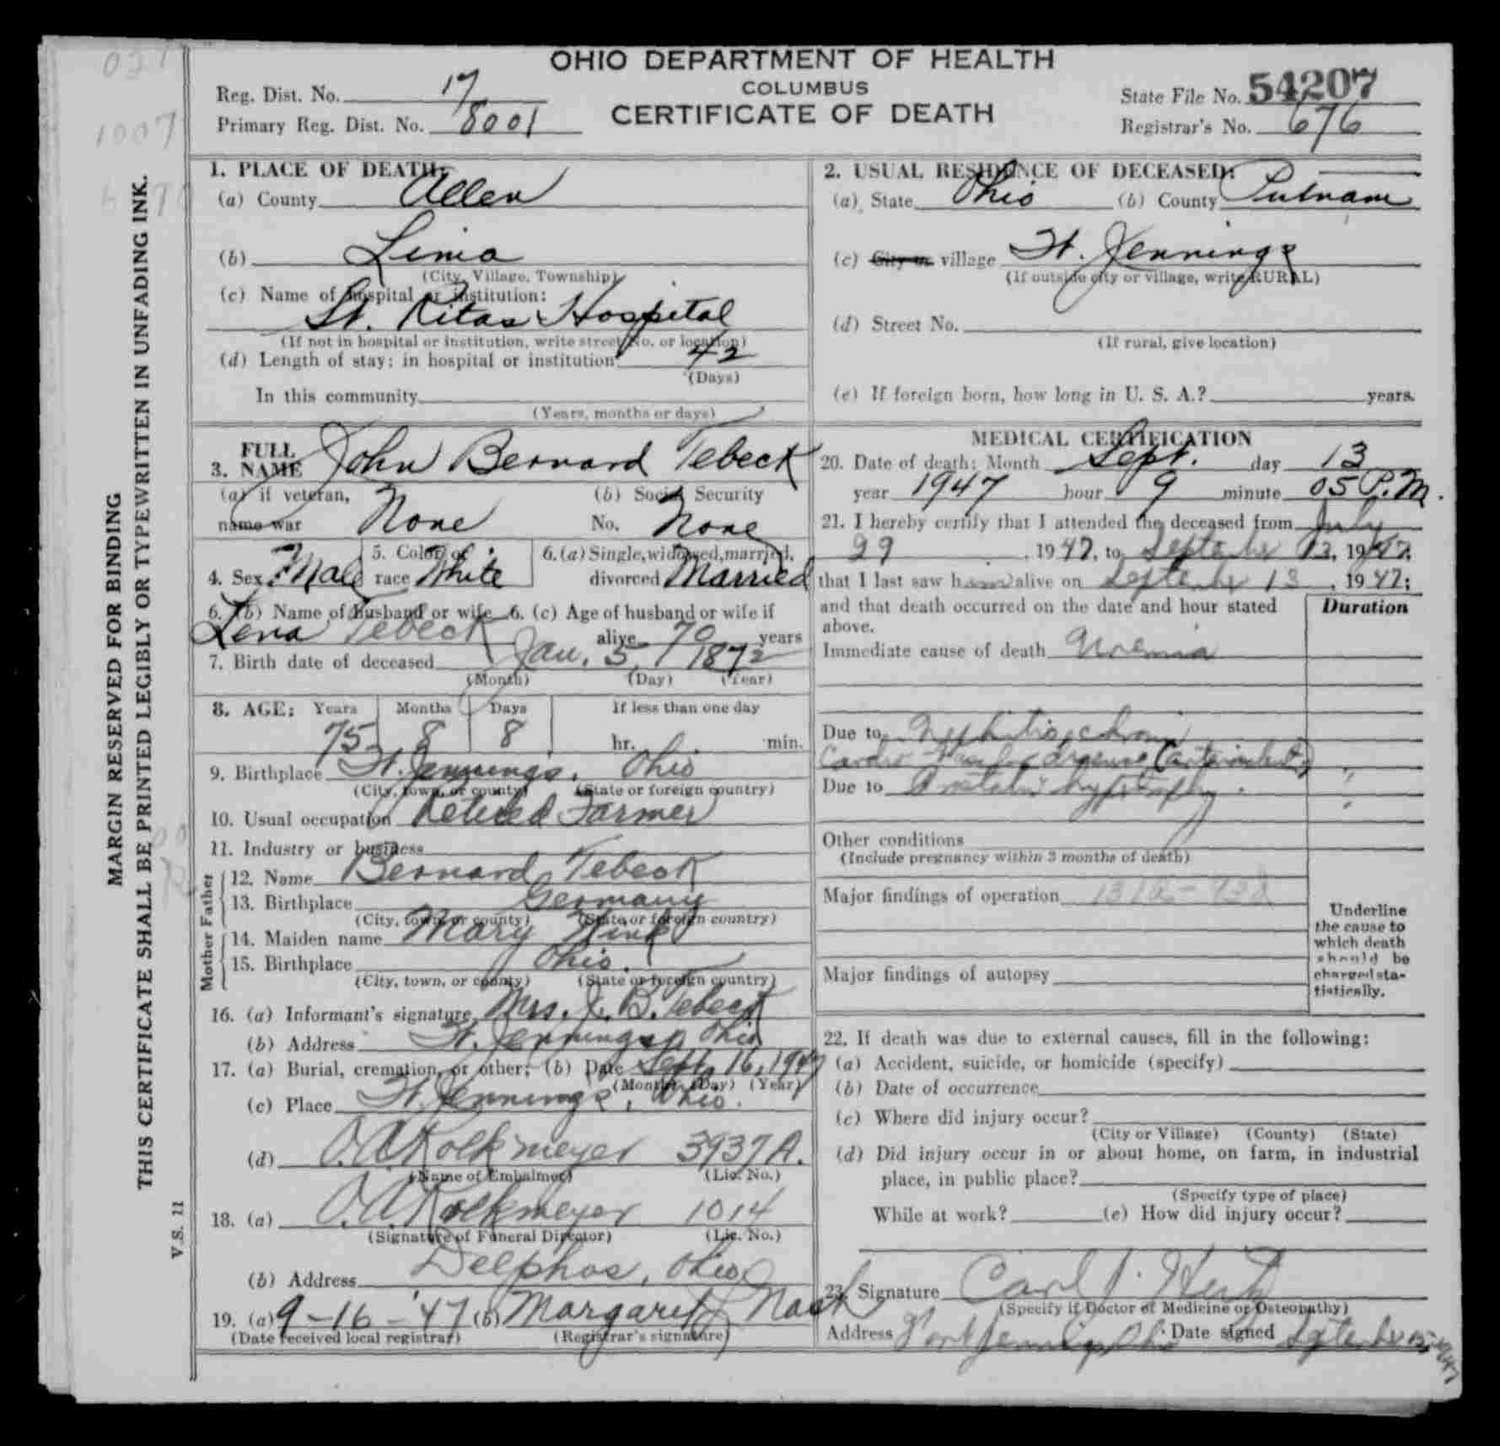 OHIO DEPARTMENT OF HEALTH
COLUMBUS
CERTIFICATE OF DEATH
Reg. Dist. No. 17
Primary Reg. Dist. No. 8001
State File No. 54207
Registrar's No. 676
MARGIN RESERVED FOR BINDING
THIS CERTIFICATE SHALL BE PRINTED LEGIBLY OR TYPEWRITTEN IN UNFADING INK.
V.S. 11
1. PLACE OF DEATH:
(a) County Allen
(b) Lima
(City, Village, Township)
(c) Name of hospital or institution:
St. Ritas Hospital
(If not in hospital or institution, write street No. or location)
(d) Length of stay: in hospital or institution 42
(Days)
In this community
(Years, months or days)
2. USUAL RESIDENCE OF DECEASED:
(a) State Ohio (b) County Putnam
(c) City or village Ft. Jennings
(If outside city or village, write RURAL)
(d) Street No.
(If rural, give location)
(e) If foreign born, how long in U. S. A.? years.
3. FULL NAME John Bernard Tebeck
(a) if veteran, name war None
(b) Social Security No. None
4. Sex Male 5. Color or race White 6. (a) Single, widowed, married, divorced Married
6. (b) Name of husband or wife Lena Tebeck 6. (c) Age of husband or wife if alive 70 years
7. Birth date of deceased Jan. 5, 1872
(Month) (Day) (Year)
8. AGE: Years Months Days If less than one day
75 8 8 hr. min.
9. Birthplace Ft. Jennings, Ohio
(City, town, or county) (State or foreign country)
10. Usual occupation Retired Farmer
11. Industry or business
Father
12. Name Bernard Tebeck
13. Birthplace Germany
(City, town, or county) (State or foreign country)
Mother
14. Maiden name Mary
15. Birthplace Ohio.
(City, town, or county) (State or foreign country)
16. (a) Informant's signature Mrs. J. B. Tebeck
(b) Address Ft. Jennings, Ohio
17. (a) Burial, cremation, or other: (b) Date Sept. 16, 1947
(Month) (Day) (Year)
(c) Place Ft. Jennings, Ohio.
(d) O. A. Kolkmeyer 3937A.
(Name of Embalmer) (Lic. No.)
18. (a) O. A. Kolkmeyer 1014
(Signature of Funeral Director) (Lic. No.)
(b) Address Delphos, Ohio
19. (a) 9-16-'47 (b) Margaret J Nash
(Date received local registrar) (Registrar's signature)
MEDICAL CERTIFICATION
20. Date of death: Month Sept. day 13
year 1947 hour 9 minute 05 P.M.
21. I hereby certify that I attended the deceased from July
29, 1947, to September 13, 1947;
that I last saw him alive on September 13, 1947;
and that death occurred on the date and hour stated above.
Duration
Immediate cause of death Uremia
Due to Nephritis, chronic
Due to Prostatic hypertrophy.
Other conditions
(Include pregnancy within 3 months of death)
Major findings of operation
Major findings of autopsy
Underline the cause to which death should be charged statistically.
22. If death was due to external causes, fill in the following:
(a) Accident, suicide, or homicide (specify)
(b) Date of occurrence
(c) Where did injury occur?
(City or Village) (County) (State)
(d) Did injury occur in or about home, on farm, in industrial
place, in public place?
(Specify type of place)
While at work? (e) How did injury occur?
23. Signature Carl J.
(Specify if Doctor of Medicine or Osteopathy)
Address Fort Jennings, Ohio Date signed September 15-1947